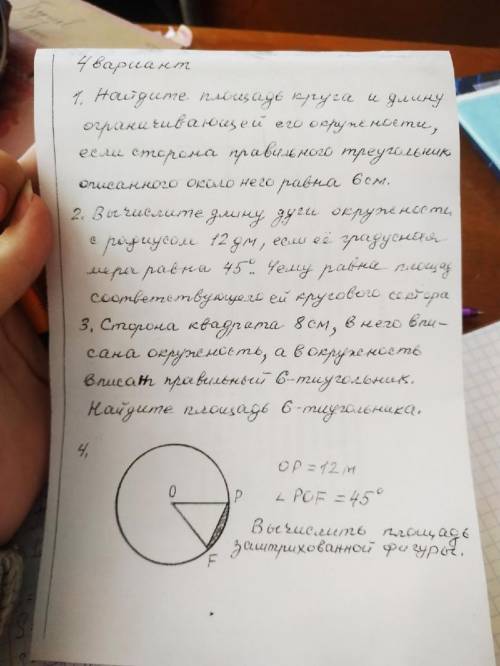 4 вариант
1. Найдите площадь круга и длину
ограничивающей его окружности,
если сторона правильного треугольник
описанного около него равна 6 см.
2. Вычислите длину дуги окружности
с радиусом 12 дм, если её градусная
мера равна 45°. Чему равна площад
соответствующего ей кругового сектора
3. Сторона квадрата 8 см, в него впи-
сана окружность, а в окружность
вписан правильный 6-тиугольник.
Найдите площадь 6-тиугольника.
4.
O
P
F
OP = 12 м
∠ POF = 45°
Вычислить площадь
заштрихованной фигуры.